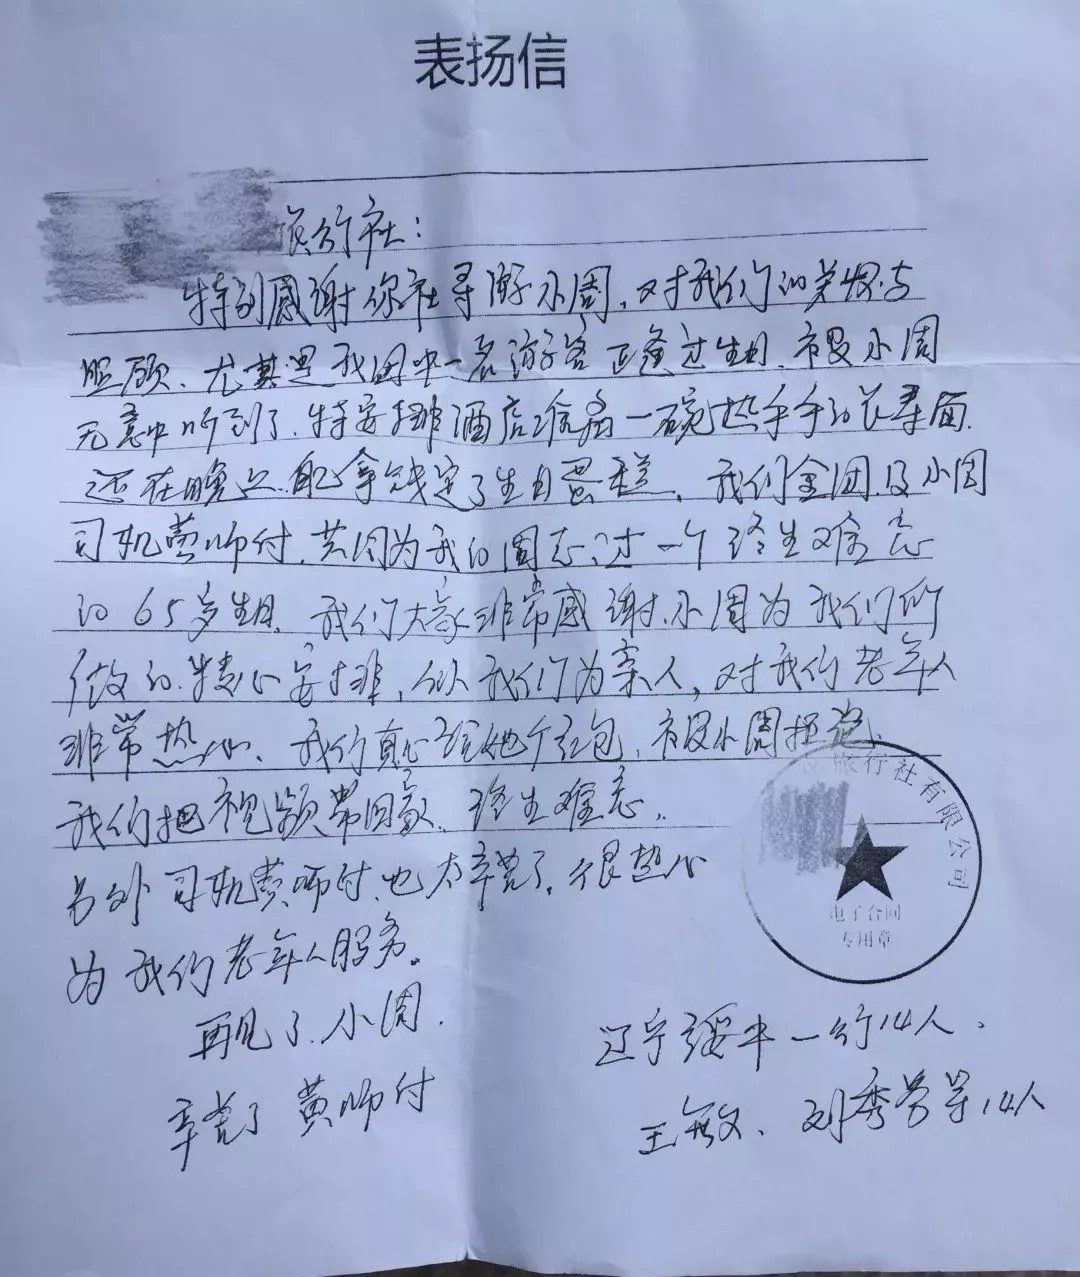 表扬信
旅行社：
特别感谢你社导游小周，对我们的关怀与
照顾、尤其是我团中一名游客正食过生日，被小周
无意中听到了，特安排酒店准备一碗热乎乎的长寿面，
还在晚上，自拿钱定了生日蛋糕，我们全团及小周
司机黄师付，共同为我的同志过一个终生难忘
的65岁生日，我们大家非常感谢，小周为我们所
做的精心安排，似我们为亲人，对我们老年人
非常热心、我们真心给她个红包，被小周拒绝，
我们把视频带回家，终生难忘。
另外司机黄师付，也太辛苦了，很热心
为我们老年人服务。
再见了，小周．
辛苦了 黄师付
旅行社有限公司
电子合同
专用章
辽宁绥中一行14人．
王敏文、刘秀芳等14人